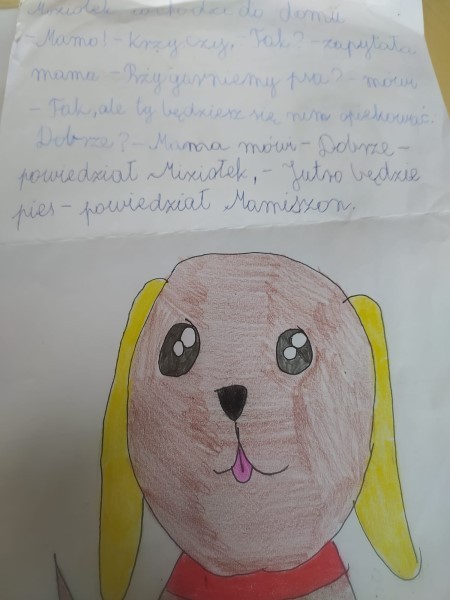 Mixiołek wchodzi do domu
-Mamo! - krzyczy. -Tak? -zapytała
mama - Przygarniemy psa? - mówi
- Tak, ale ty będziesz się nim opiekować.
Dobrze? - Mama mówi - Dobrze -
powiedział Mixiołek, - Jutro będzie
pies - powiedział Mamiszon.